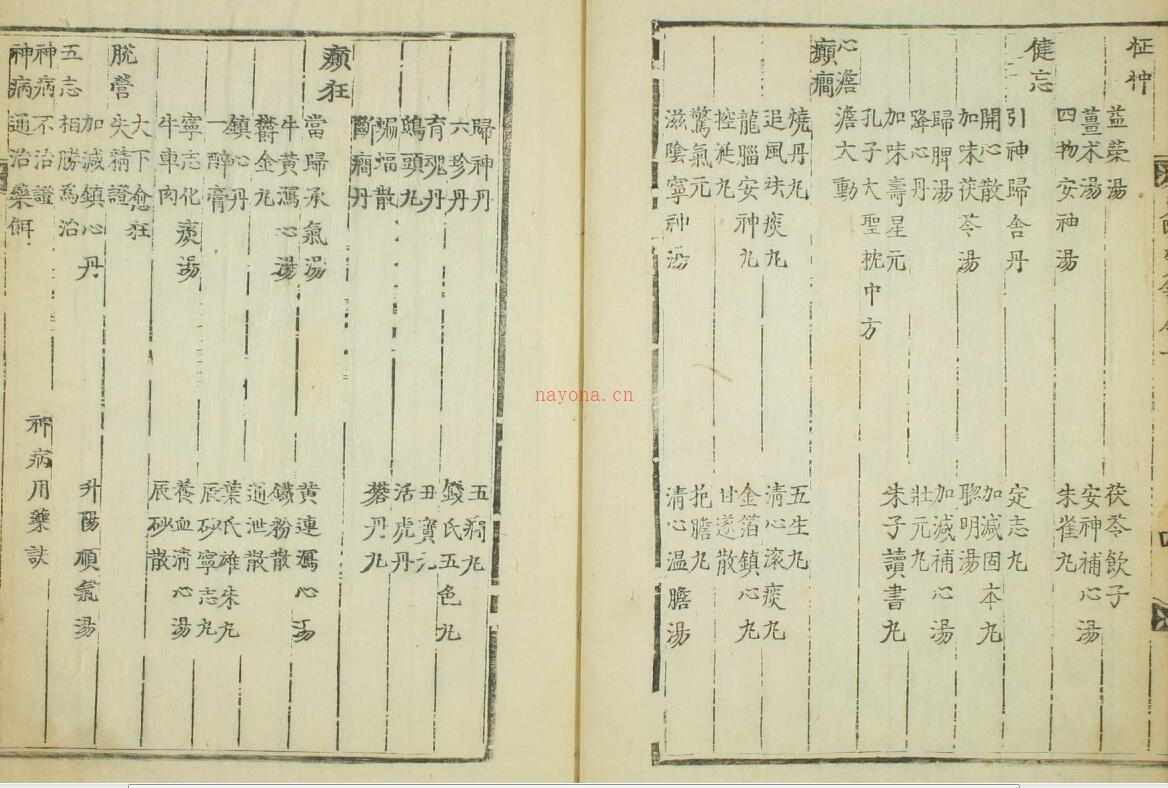 怔忡
益榮湯
茯苓飲子
薑朮湯
安神補心湯
四物安神湯
朱雀丸
健忘
引神歸舍丹
定志丸
開心散
加減固本丸
加味茯苓湯
聰明湯
歸脾湯
加減補心湯
降心丹
壯元丸
加味壽星元
朱子讀書丸
孔子大聖枕中方
心澹澹大動
癲癇
燒丹丸
五生丸
追風祛痰丸
清心滾痰丸
龍腦安神丸
金箔鎮心丸
控涎丸
甘遂散
驚氣元
抱膽丸
滋陰寧神湯
清心温膽湯
歸神丹
五癇丸
六珍丹
錢氏五色丸
育魂丹
丑寶元
鴟頭丸
活虎丹
蝙蝠散
礬丹丸
斷癇丹
癲狂
當歸承氣湯
黄連瀉心湯
牛黄瀉心湯
鐵粉散
鬱金丸
通泄散
鎮心丹
葉氏雄朱丸
一醉膏
辰砂寧志丸
寧志化痰湯
養血清心湯
牛車肉
辰砂散
大下愈狂
脫營失精證
加減鎮心丹
升陽順氣湯
五志相勝爲治
神病不治證
神病用藥訣
神病通治藥餌
nayona.cn